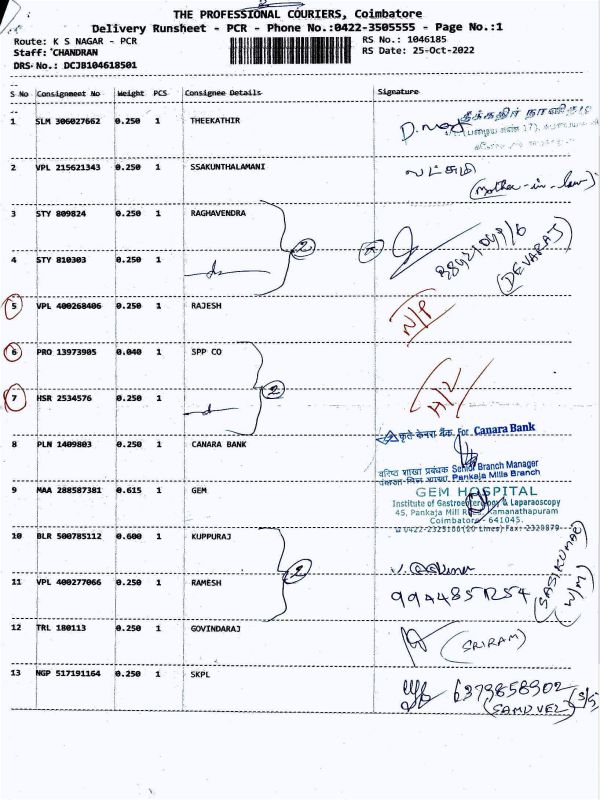 THE PROFESSIONAL COURIERS, Coimbatore
Delivery Runsheet - PCR - Phone No.:0422-3505555 - Page No.:1
Route: K S NAGAR - PCR
RS No.: 1046185
Staff: CHANDRAN
RS Date: 25-Oct-2022
DRS No.: DCJB104618501
S No Consignment No Weight PCS Consignee Details Signature
1 SLM 306027662 0.250 1 THEEKATHIR
தீக்கதிர் நாளிதழ்
2 VPL 215621343 0.250 1 SSAKUNTHALAMANI லட்சுமி
(Mother-in-law)
3 STY 809824 0.250 1 RAGHAVENDRA
2
(DEVARAJ)
4 STY 810303 0.250 1
5 VPL 400268406 0.250 1 RAJESH N/P
6 PRO 13973905 0.040 1 SPP CO
2
7 HSR 2534576 0.250 1 H/L
कृते केनरा बैंक For Canara Bank
8 PLN 1409803 0.250 1 CANARA BANK
वरिष्ठ शाखा प्रबंधक Senior Branch Manager
Pankaja Mills Branch
9 MAA 288587381 0.615 1 GEM
GEM HOSPITAL
Institute of Gastroenterology & Laparaoscopy
45, Pankaja Mill Road, Ramanathapuram
Coimbatore - 641045.
10 BLR 500785112 0.600 1 KUPPURAJ
2
(SASIKUMAR)
(W/M)
11 VPL 400277066 0.250 1 RAMESH
12 TRL 180113 0.250 1 GOVINDARAJ (SRIRAM)
13 NGP 517191164 0.250 1 SKPL 6379858902
(SAMUVEL)